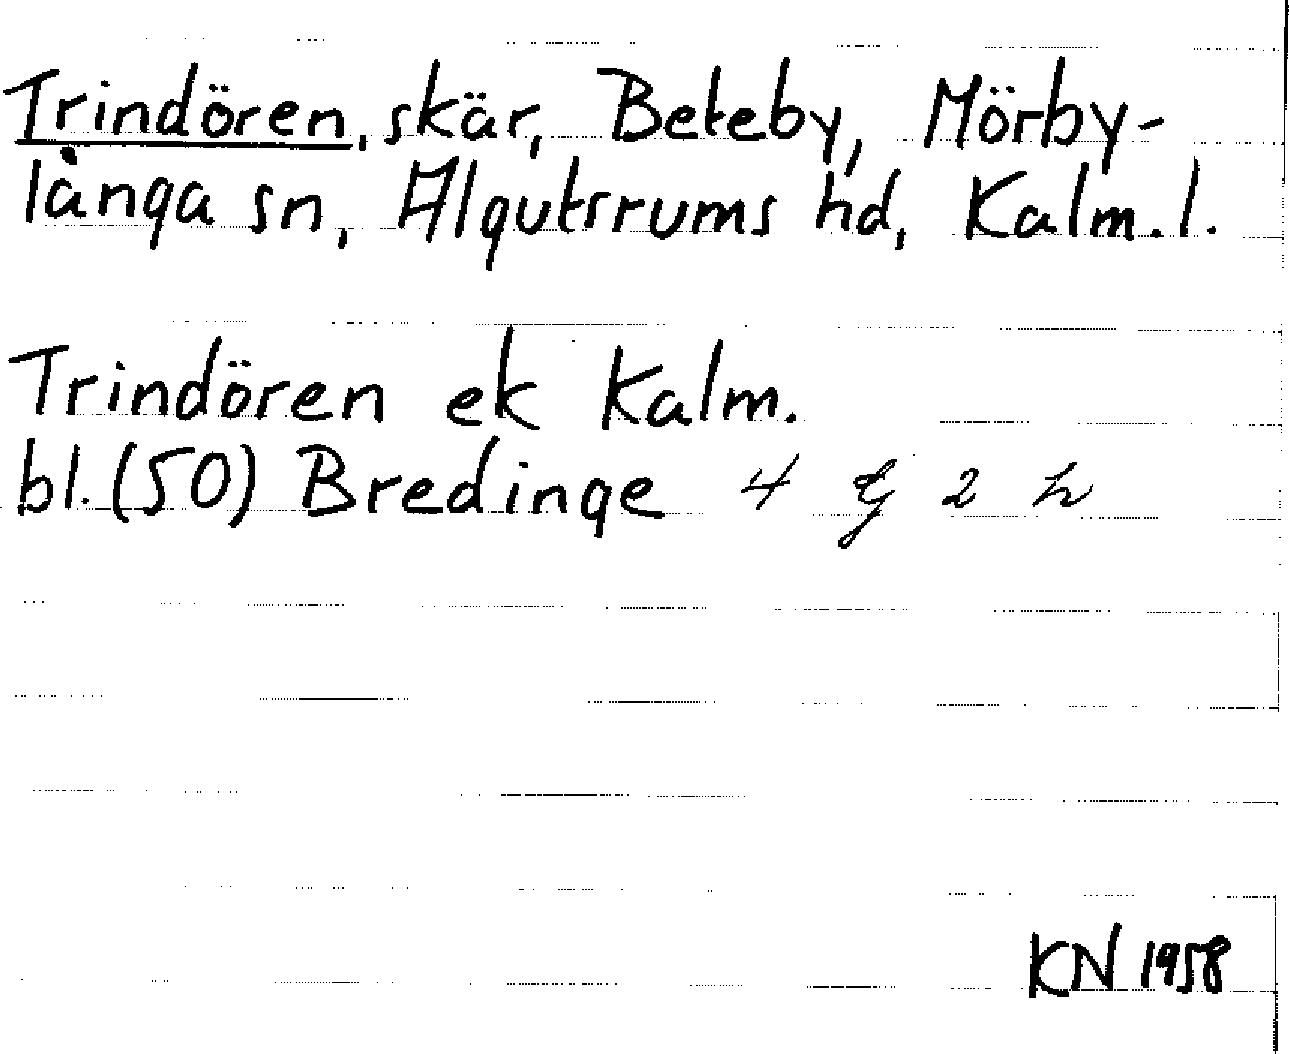 Trindören, skär, Beteby, Mörby-
långa sn, Algutsrums hd, Kalm. l.
Trindören ek Kalm.
bl. (50) Bredinge 4 g 2 h
KN 1958